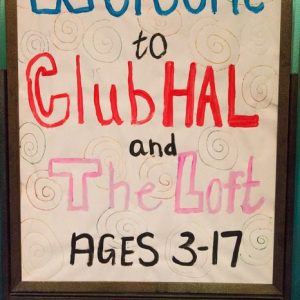 Welcome
to
Club HAL
and
The Loft
AGES 3-17